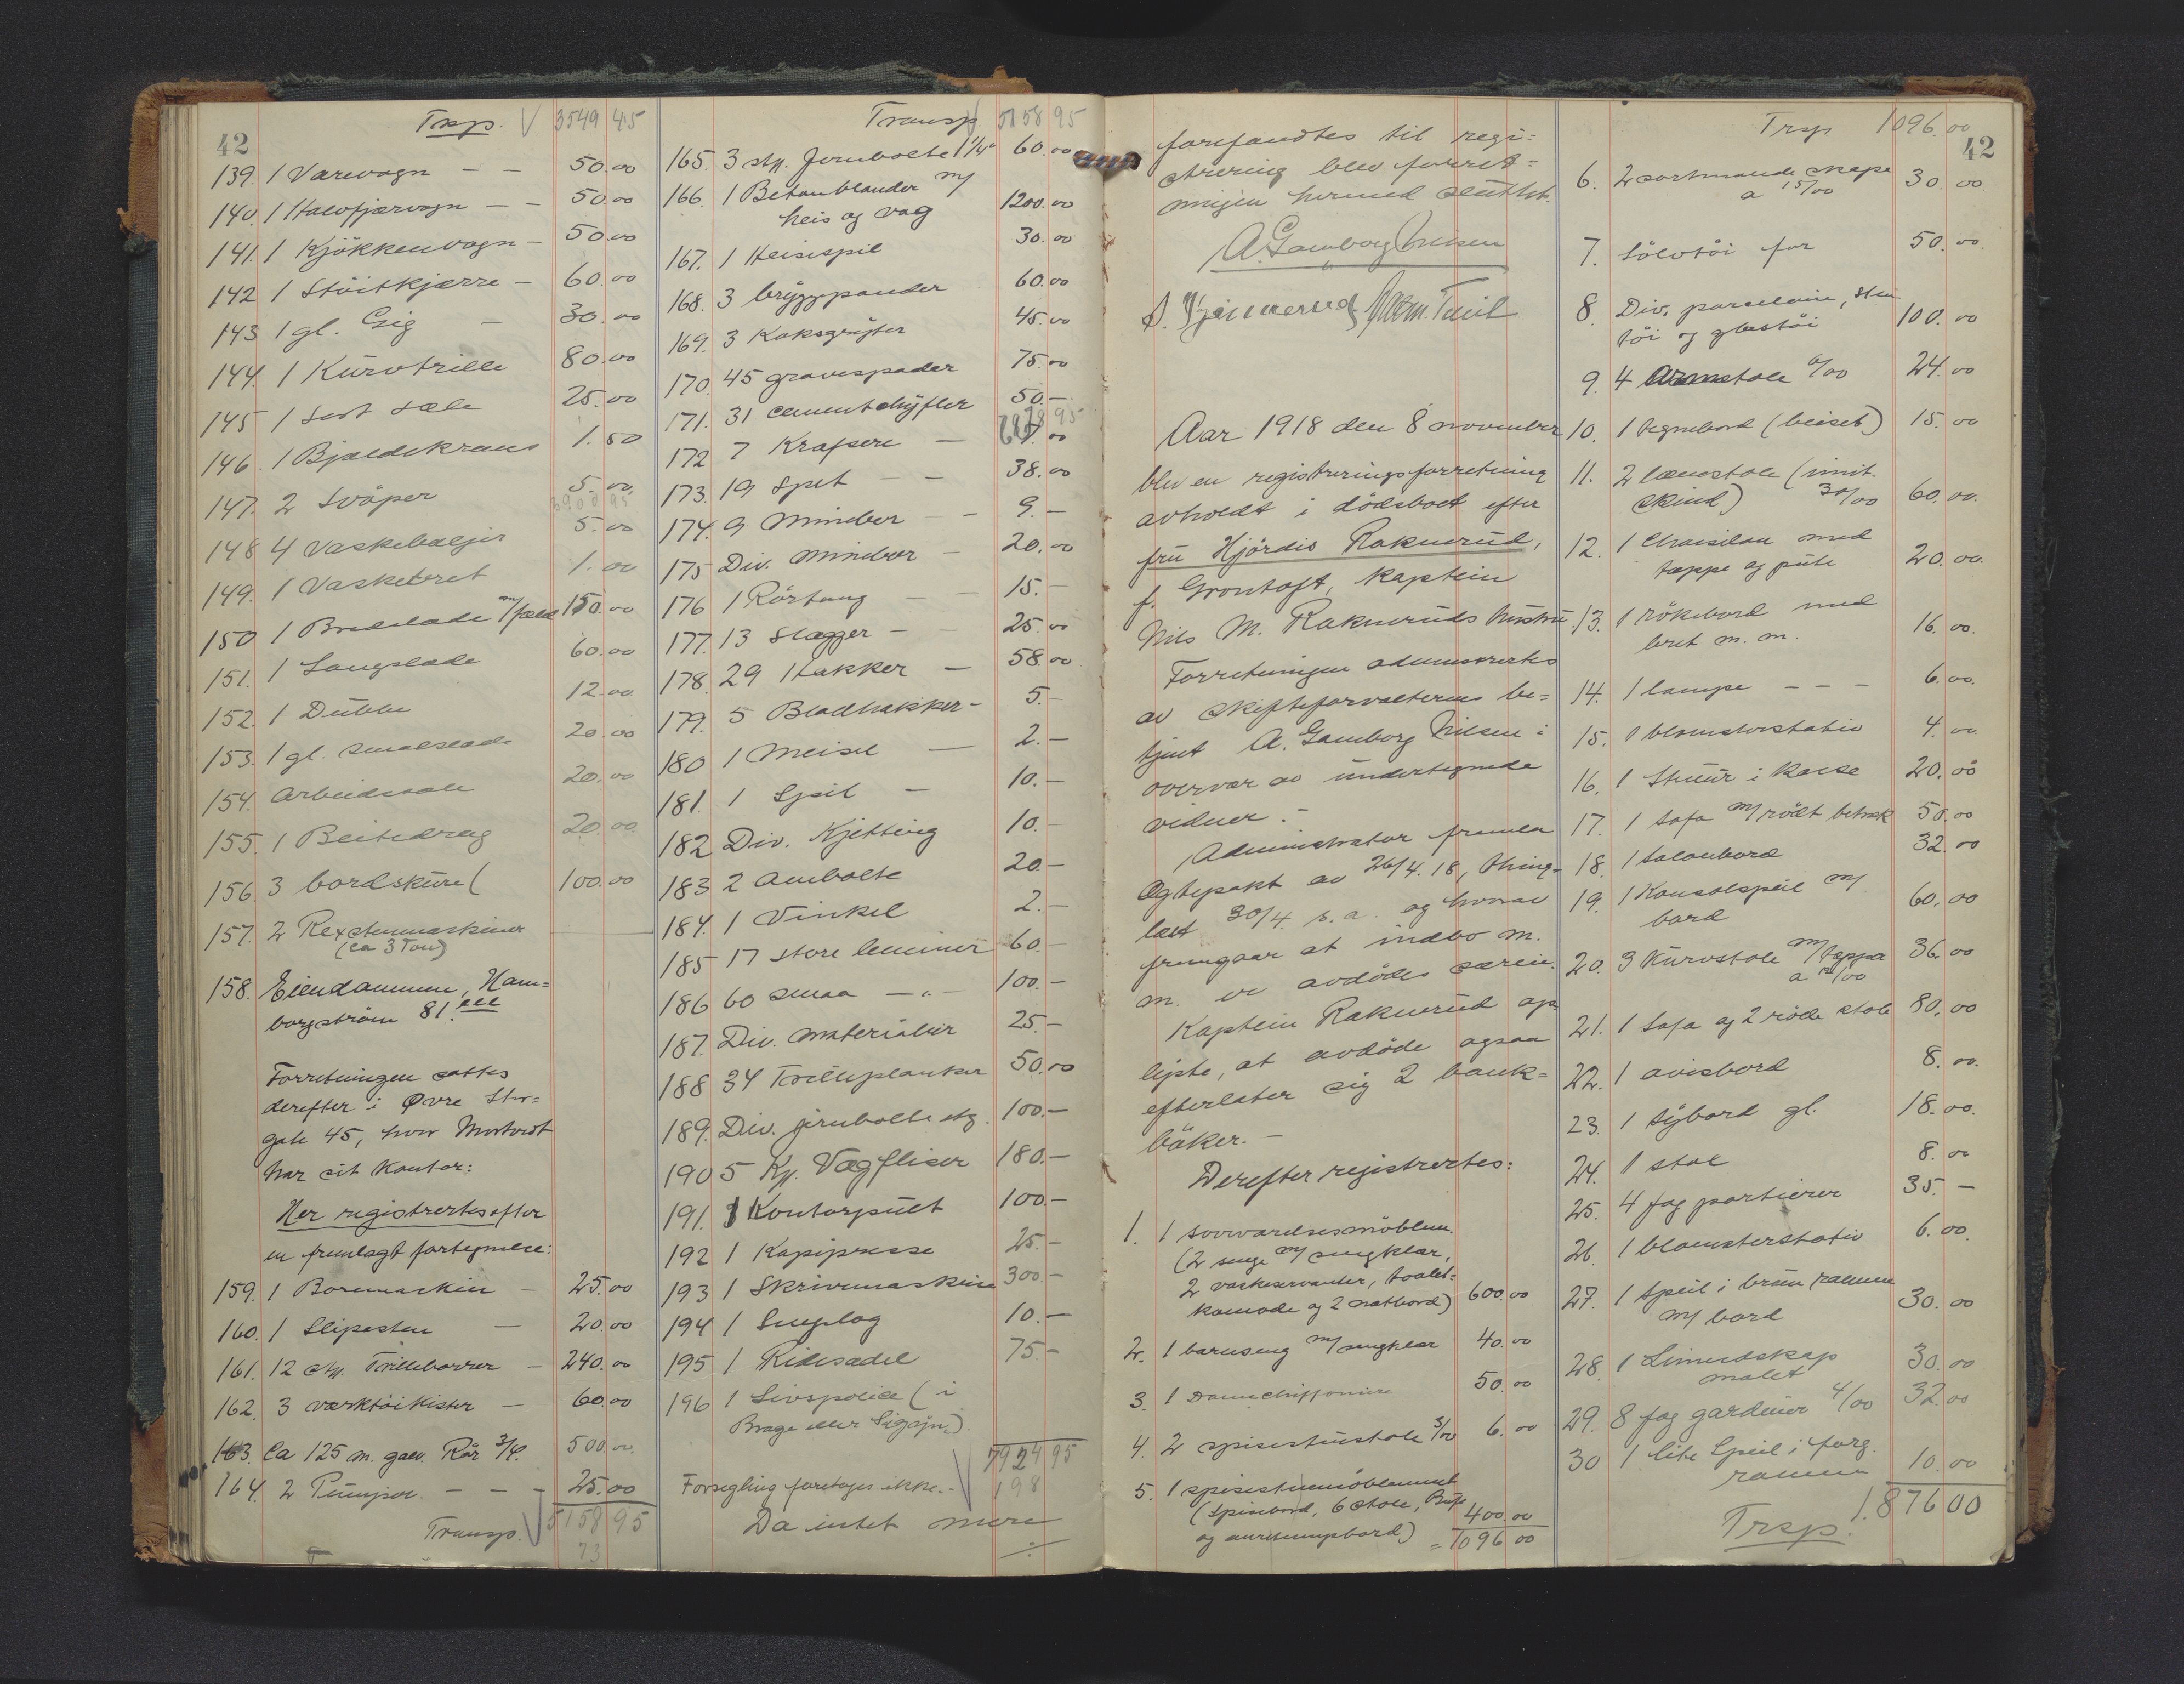 42
Trsp. 3549 45
139. 1 Varevogn - - 50.00
140. 1 Halvfjærvogn - - 50.00
141. 1 Kjøkkenvogn - 50.00
142 1 Støitkjærre - 60.00
143 1 gl. Gig - 30.00
144. 1 Kurvtrille 80.00
145 1 sort sæle 25.00
146. 1 Bjældekrans 1.50
147. 2 Svøper 5.00
3900 95
148 4 Vaskebaljer 5.00
149. 1 Vaskebret 1.00
150 1 Bredslade m/fæld 150.00
151. 1 Langslade 60.00
152. 1 Dubbe 12.00
153. 1 gl. smalslade 20.00
154. Arbeidssale 20.00
155. 1 Beitedrag 20.00
156. 3 bordskure ( 100.00
157. 2 Rexstenmaskiner
(ca 3 Ton)
158. Eiendommen, Ham=
borgstrøm 81.
Forretningen sattes
derefter i Øvre Stor=
gate 45, hvor
har sit Kontor:
Her registrertes efter
en fremlagt fortegnelse:
159. 1 Boremaskin - 25.00
160. 1 Slipesten - 20.00
161. 12 stk. Trillebørrer - 240.00
162. 3 værktøikister - 60.00
163. Ca 125 m. galv. Rør 3/4. 500.00
164. 2 Pumper - - - 25.00
Transp. 5158 95
73
Transp 5158 95
165. 3 stk. Jernbolte 1 1/4" 60.00
166. 1 Betonblander m/
heis og vog 1200.00
167. 1 Heisespil 30.00
168. 3 bryggpander 60.00
169. 3 Koksgryter 45.00
170. 45 gravespader 75.00
171. 31 cementskyfler 50.-
172 7 Krafsere - 7.00
173. 19 Spet - - 38.00
174. 9 Minebor - - 9.-
175 Div. Minebor - 20.00
176 1 Rørtang - - 15.-
177. 13 Slægger - - 25.00
178. 29 Hakker - 58.00
179. 5 Bladhakker - 5.-
180 1 Meisel - 2.-
181. 1 Spil - 10.-
182 Div. Kjetting 10.-
183 2 Ambolte 20.-
184. 1 Vinkel 2.-
185 17 store lemmer 60.-
186 60 smaa -"- 100.-
187. Div. materialier 25.-
188 34 Trilleplanker 50.00
189. Div. jernbolte etz. 100.-
190 5 Kg. Vægfliser 180.-
191. 1 Kontorpult 100.-
192 1 Kopipresse 25.-
193 1 Skrivemaskine 300.-
194 1 Sneplog 10.-
195 1 Ridesadel 75.-
196 1 Livspolice (i
Brage eller Sigyn)
7924 95
Forsegling foretages ikke.- 198
Da intet mere
forefandtes til regi=
strering blev forret=
ningen hermed sluttet.
A. Gamborg Nilsen
Aar 1918 den 8 november
blev en registreringsforretning
avholdt i dødsboet efter
fru Hjørdis Raknerud,
f. Grontoft, kaptein
Nils M. Rakneruds hustru.
Forretningen administrertes
av skifteforvalterens be=
tjent A. Gamborg Nilsen i
overvær av undertegnede
vidner.-
Administrator fremla
Egtepakt av 26/4.18, thing=
læst 30/4. s.a. og hvorav
fremgaar at indbo m.
m. er avdødes særeie.
Kaptein Raknerud op=
lyste, at avdøde ogsaa
efterlater sig 2 bank=
bøker.-
Derefter registrertes:
1. 1 soveværelsesmøblem.
(2 senge m/sengklær,
2 vaskeservanter, toalet=
komode og 2 natbord) 600.00
2. 1 barneseng m/sengklær 40.00
3. 1 Damechiffoniere 50.00
4. 2 spisestuestole 3/00 6.00
5. 1 spisestuemøblement
(Spisebord, 6 stole, Buffe
og anretningsbord) 400.00
= 1096 00
42
Trsp 1096.00
6. 2 sortmalede skape
a 15/00 30.00
7. Sølvtøi for 50.00
8. Div. porcelain, sten
tøi og glastøi 100.00
9. 4 Armstole 6/00 24.00
10. 1 tegnebord (beiset) 15.00
11. 2 lænestole (imit.
skind) 30/00 60.00
12. 1 Chaiselon med
tæppe og pute 20.00
13. 1 røkebord med
bret m.m. 16.00
14. 1 lampe - - - 6.00
15. 1 blomsterstativ 4.00
16. 1 Stuur i kasse 20.00
17. 1 sofa m/rødt betræk 50.00
18. 1 salonbord 32.00
19. 1 Konsolspeil m/
bord 60.00
20. 3 Kurvstole m/teppe
a 12/00 36.00
21. 1 sofa og 2 røde stole 80.00
22. 1 avisbord 8.00
23. 1 sybord gl. 18.00
24. 1 stol 8.00
25. 4 fag portierer 35.-
26. 1 blomsterstativ 6.00
27. 1 speil i brun ramme
m/ bord 30.00
28. 1 Linnedskap
malet 30.00
29. 8 fag gardiner 4/00 32.00
30 1 lite Speil i forg.
ramme 10.00
Trsp. 1.876 00